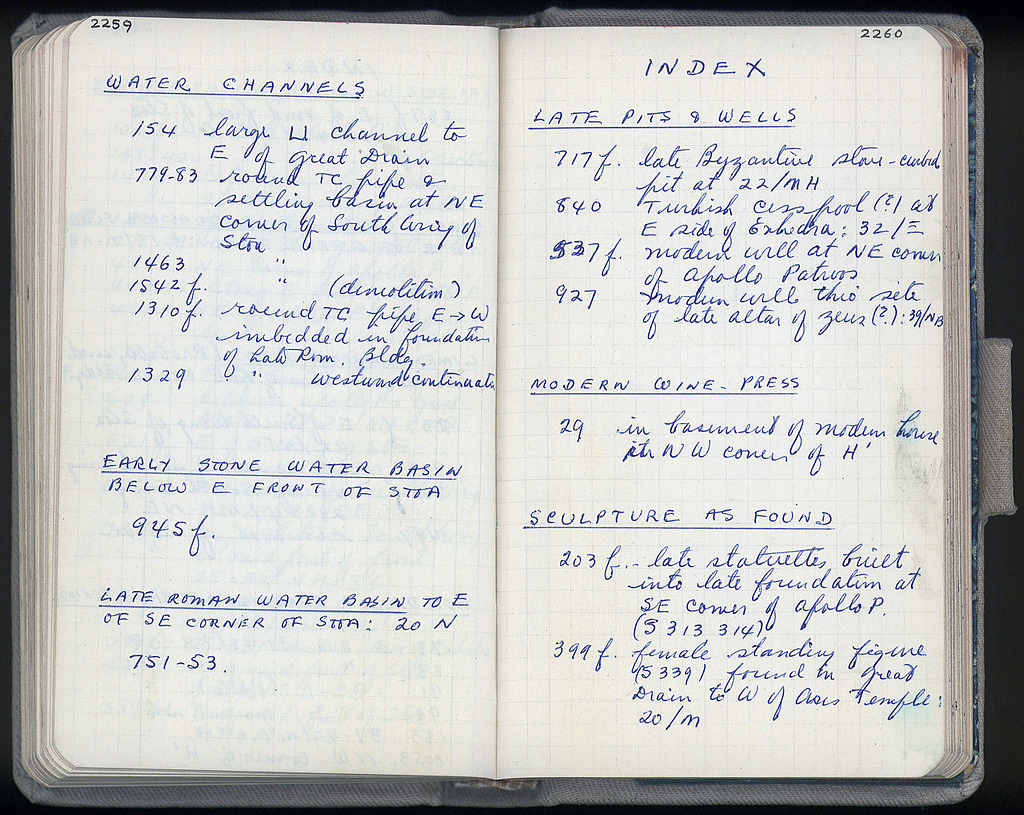 2259
WATER CHANNELS
154 large ⊔ channel to
E of Great Drain
779-83 round TC pipe &
settling basin at NE
corner of South Wing of
Stoa
1463 "
1542 f. " (demolition)
1310 f. round TC pipe E→W
imbedded in foundation
of Late Rom. Bldg.
1329 " westward continuation
EARLY STONE WATER BASIN
BELOW E FRONT OF STOA
945 f.
LATE ROMAN WATER BASIN TO E
OF SE CORNER OF STOA: 20 N
751-53
2260
INDEX
LATE PITS & WELLS
717 f. late Byzantine stone-curbed
pit at 22/MH
840 Turkish cess pool (?) at
E side of Exhedra: 32/Ξ
537 f. modern well at NE corner
of Apollo Patroos
927 modern well thro site
of late altar of Zeus (?): 39/NB
MODERN WINE-PRESS
29 in basement of modern house
at NW corner of H'
SCULPTURE AS FOUND
203 f. - late statuettes built
into late foundation at
SE corner of Apollo P.
(S 313 314)
399 f. female standing figure
(S 339) found in Great
Drain to W of Ares Temple:
20/M